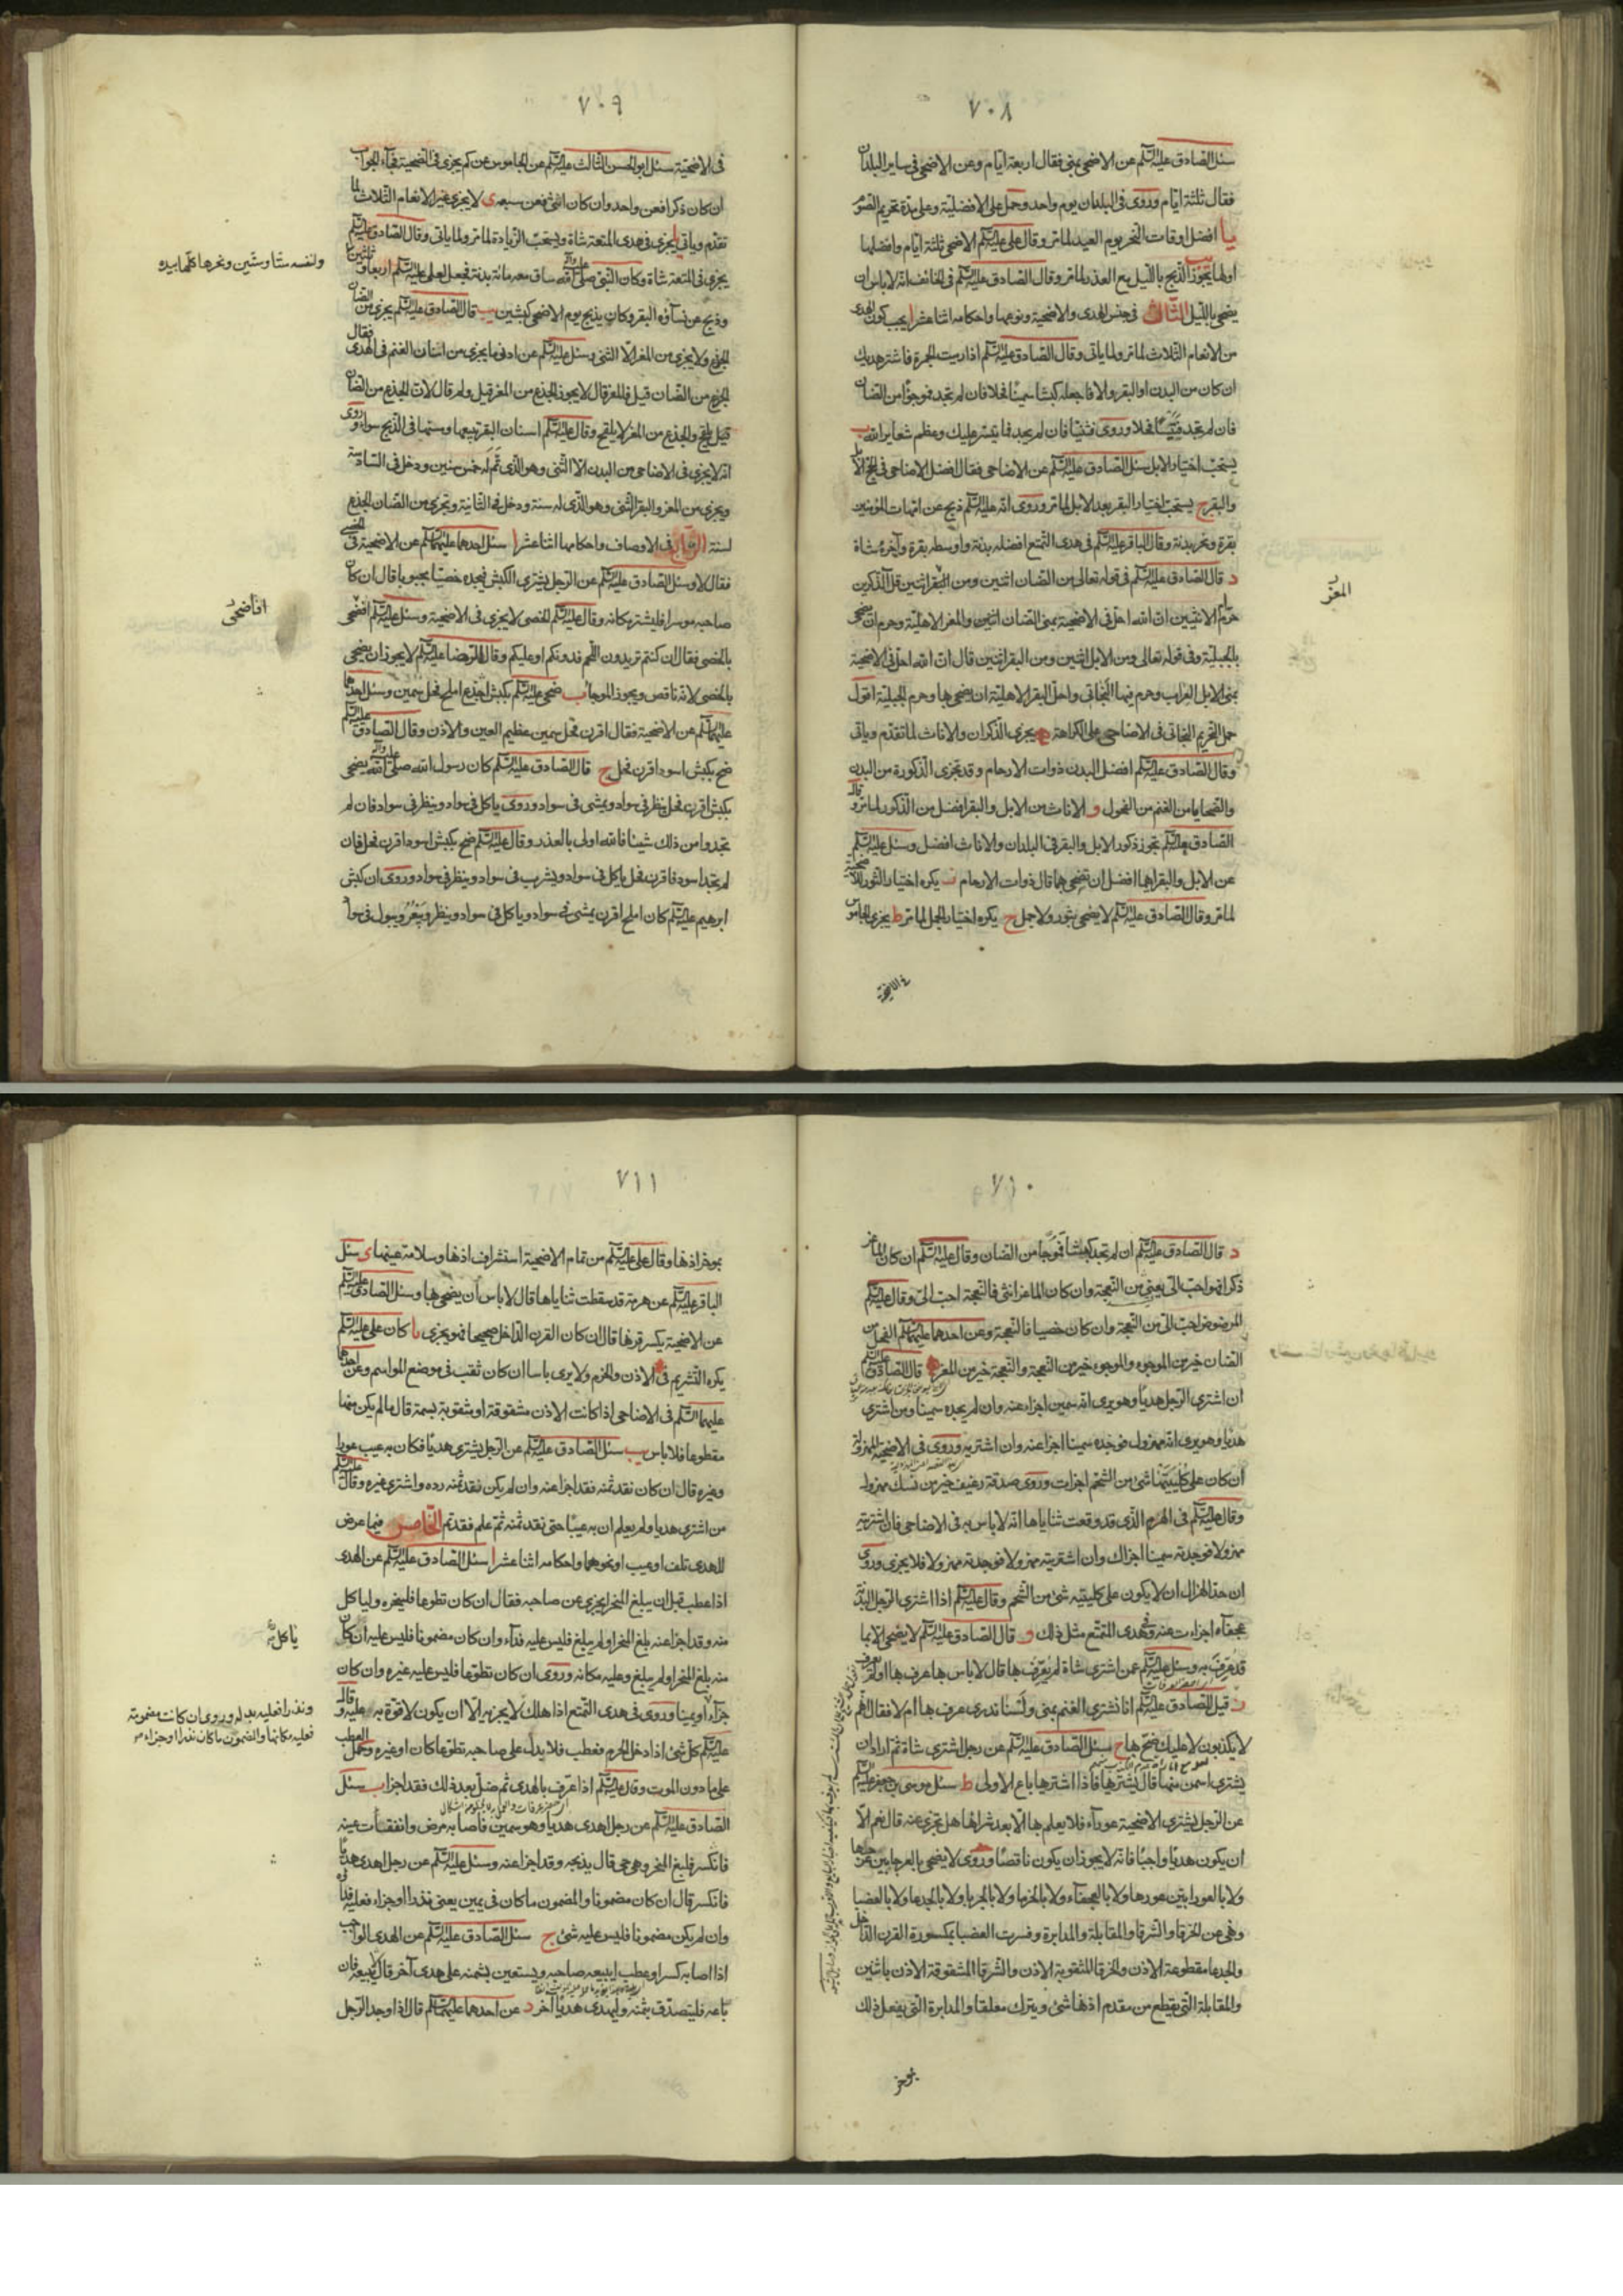 ٧٠٨
سئل الصادق عليه السلام عن الاضحى بمنى فقال اربعة ايام وعن الاضحى في ساير البلدان
فقال ثلثة ايام وروى في البلدان يوم واحد وحمل على الافضلية وعلى مدة تحريم الصوم
يا افضل اوقات النحر يوم العيد لما مر وقال على عليه السلام الاضحى ثلثة ايام وافضلها
اولها يب يجوز الذبح بالليل مع العذر لما مر وقال الصادق عليه السلام في الخائف انه لا باس ان
يضحى بالليل الثالث في جنس الهدى والاضحية ونوعهما واحكامه اثنا عشر ا يجب كون الهدى
من الانعام الثلاث لما مر ولما ياتى وقال الصادق عليه السلام اذا رميت الجمرة فاشتر هديك
ان كان من البدن او البقر والا فاجعله كبشا سمينا فحلا فان لم تجد فموجوءا من الضان
فان لم تجد فتيسا فحلا وروى فثنيا فان لم يجد فما تيسر عليك وعظم شعاير الله ب
يستحب اختيار الابل سئل الصادق عليه السلام عن الاضاحى فقال افضل الاضاحى في الحج الابل
والبقر ج يستحب اختيار البقر بعد الابل لما مر وروى انه عليه السلام ذبح عن امهات المؤمنين
بقرة ونحر بدنة وقال الباقر عليه السلام في هدى التمتع افضله بدنة واوسطه بقرة وآخره شاة
د قال الصادق عليه السلام في قوله تعالى من الضان اثنين ومن المعز اثنين قل آلذكرين
حرم ام الانثيين ان الله احل في الاضحية بمنى الضان اثنين والمعز الاهلية وحرم ان يضحى
بالجبلية وفي قوله تعالى ومن الابل اثنين ومن البقر اثنين قال ان الله احل في الاضحية
بمنى الابل العراب وحرم فيها البخاتى واحل البقر الاهلية ان يضحى بها وحرم الجبلية اقول
حمل تحريم البخاتى في الاضاحى على الكراهة ه يجزى الذكران والاناث لما تقدم وياتى
وقال الصادق عليه السلام افضل البدن ذوات الارحام وقد تجزى الذكورة من البدن
والضحايا من الغنم من الفحول و الاناث من الابل والبقر افضل من الذكور لما مر وقال
الصادق عليه السلام تجوز ذكور الابل والبقر في البلدان والاناث افضل وسئل عليه السلام
عن الابل والبقر ايهما افضل ان تضحى بها قال ذوات الارحام ز يكره اختيار الثور للاضحية
لما مر وقال الصادق عليه السلام لا يضحى بثور ولا جمل ح يكره اختيار الجمل لما مر ط يجزى الجاموس
في الاضحية
المعز
٧٠٩
في الاضحية سئل ابو الحسن الثالث عليه السلام عن الجاموس عن كم يجزى في الضحية فجاء الجواب
ان كان ذكرا فعن واحد وان كان انثى فعن سبعة ى لا يجزى غير الانعام الثلاث لما
تقدم وياتى يا يجزى في هدى المتعة شاة ويستحب الزيادة لما مر ولما ياتى وقال الصادق عليه السلام
يجزى في المتعة شاة وكان النبى صلى الله عليه وآله ساق معه مائة بدنة فجعل لعلى عليه السلام اربعا وثلثين
وذبح عن نسائه البقر وكان يذبح يوم الاضحى كبشين يب قال الصادق عليه السلام يجزى من الضان
الجذع ولا يجزى من المعز الا الثنى وسئل عليه السلام عن ادنى ما يجزى من اسنان الغنم في الهدى فقال
الجذع من الضان قيل فالمعز قال لا يجوز الجذع من المعز قيل ولم قال لان الجذع من الضان
يلقح والجذع من المعز لا يلقح وقال عليه السلام اسنان البقر تبيعها ومسنها في الذبح سواء وروى
انه لا يجزى في الاضاحى من البدن الا الثنى وهو الذى تم له خمس سنين ودخل في السادسة
ويجزى من المعز والبقر الثنى وهو الذى له سنة ودخل في الثانية وتجزى من الضان الجذع
لسنة الرابع في الاوصاف واحكامها اثنا عشر ا سئل احدهما عليهما السلام عن الاضحية في الخصى
فقال لا وسئل الصادق عليه السلام عن الرجل يشترى الكبش فيجده خصيا مجبوبا قال ان كان
صاحبه موسرا فليشتر مكانه وقال عليه السلام الخصى لا يجزى في الاضحية وسئل عليه السلام افضحى
بالخصى فقال ان كنتم تريدون اللحم فدونكم او عليكم وقال الرضا عليه السلام لا يجوز ان يضحى
بالخصى لانه ناقص ويجوز الموجأ ب ضحى عليه السلام بكبش اجذع املح فحل سمين وسئل احدهما
عليهما السلام عن الاضحية فقال اقرن فحل سمين عظيم العين والاذن وقال الصادق عليه السلام
ضح بكبش اسود اقرن فحل ج قال الصادق عليه السلام كان رسول الله صلى الله عليه وآله يضحى
بكبش اقرن فحل ينظر في سواد ويمشى في سواد وروى ياكل في سواد وينظر في سواد فان لم
تجدوا من ذلك شيئا فالله اولى بالعذر وقال عليه السلام ضح بكبش اسود اقرن فحل فان
لم تجد اسود فاقرن فحل ياكل في سواد ويشرب في سواد وينظر في سواد وروى ان كبش
ابرهيم عليه السلام كان املح اقرن يمشى في سواد وياكل في سواد وينظر ويبعر ويبول في سواد
ولنفسه ستا وستين ونحرها كلها بيده
افاضحى
٧١٠
د قال الصادق عليه السلام ان لم تجد كبشا فموجأ من الضان وقال عليه السلام ان كان الماعز
ذكرا فهو احب الى يعنى من النعجة وان كان الماعز انثى فالنعجة احب الى وقال عليه السلام
المرضوض احب الى من النعجة وان كان خصيا فالنعجة وعن احدهما عليهما السلام الفحل من
الضان خير من الموجوء والموجوء خير من النعجة والنعجة خير من المعز ه قال الصادق عليه السلام
ان اشترى الرجل هديا وهو يرى انه سمين اجزا عنه وان لم يجده سمينا ومن اشترى
هديا وهو يرى انه مهزول فوجده سمينا اجزا عنه وان اشتريه وروى في الاضحية المهزولة
ان كان على كليتيها شئ من الشحم اجزات وروى صدقة رغيف خير من نسك مهزول
وقال عليه السلام في الهرم الذى قد وقعت ثناياها انه لا باس به في الاضاحى فان اشتريته
مهزولا فوجدته سمينا اجزاك وان اشتريته مهزولا فوجدته مهزولا فلا يجزى وروى
ان حد الهزال ان لا يكون على كليتيه شئ من الشحم وقال عليه السلام اذا اشترى الرجل البدنة
عجفاء اجزاءت عنه وفي هدى المتمتع مثل ذلك و قال الصادق عليه السلام لا يضحى الا بما
قد عرف به وسئل عليه السلام عمن اشترى شاة لم يعرف بها قال لا باس بها عرف بها او لم يعرف
ز قيل للصادق عليه السلام انا نشترى الغنم بمنى ولسنا ندرى عرف بها ام لا فقال انهم
لا يكذبون لا عليك ضح بها ح سئل الصادق عليه السلام عن رجل اشترى شاة ثم اراد ان
يشترى اسمن منها قال يشتريها فاذا اشتريها باع الاولى ط سئل موسى بن جعفر عليه السلام
عن الرجل يشترى الاضحية عوراء فلا يعلم بها الا بعد شرائها هل تجزى عنه قال نعم الا
ان يكون هديا واجبا فانه لا يجوز ان يكون ناقصا وروى لا يضحى بالعرجا بين عرجها
ولا بالعورا بين عورها ولا بالعجفاء ولا بالخرما ولا بالجربا ولا بالجدعا ولا بالعضبا
وهى عن الخرقا والشرقا والمقابلة والمدابرة وفسرت العضبا بمكسورة القرن الداخل
والجدعا مقطوعة الاذن والخرقا المثقوبة الاذن والشرقا المشقوقة الاذن باثنين
والمقابلة التى يقطع من مقدم اذنها شئ ويترك معلقا والمدابرة التى يفعل ذلك
بمؤخر
٧١١
بمؤخر اذنها وقال على عليه السلام من تمام الاضحية استشراف اذنها وسلامة عينها ى سئل
الباقر عليه السلام عن هرمة قد سقطت ثناياها قال لا باس ان يضحى بها وسئل الصادق عليه السلام
عن الاضحية يكسر قرنها قال ان كان القرن الداخل صحيحا فهو يجزى يا كان على عليه السلام
يكره التشريم في الاذن والخرم ولا يرى باسا ان كان ثقب في موضع المواسم وعن احدهما
عليهما السلام في الاضاحى اذا كانت الاذن مشقوقة او مثقوبة بسمة قال ما لم يكن منها
مقطوعا فلا باس يب سئل الصادق عليه السلام عن الرجل يشترى هديا فكان به عيب عور او
وغيره قال ان كان نقد ثمنه فقد اجزا عنه وان لم يكن نقد ثمنه رده واشترى غيره وقال عليه السلام
من اشترى هديا ولم يعلم ان به عيبا حتى نقد ثمنه ثم علم فقد تم الخامس فيما عرض
للهدى تلف او عيب او نحوهما واحكامه اثنا عشر ا سئل الصادق عليه السلام عن الهدى
اذا عطب قبل ان يبلغ المنحر ايجزى عن صاحبه فقال ان كان تطوعا فلينحره ولياكل
منه وقد اجزا عنه بلغ المنحر او لم يبلغ فليس عليه فداء وان كان مضمونا فليس عليه ان كان
منه بلغ المنحر او لم يبلغ وعليه مكانه وروى ان كان تطوعا فليس عليه غيره وان كان
جزاء او يمينا وروى في هدى التمتع اذا هلك لا يجزيه الا ان يكون لا قوة به عليه وقال
عليه السلام كل شئ اذا دخل الحرم فعطب فلا بدل على صاحبه تطوعا كان او غيره وحمل العطب
على ما دون الموت وقال عليه السلام اذا عرف بالهدى ثم ضل بعد ذلك فقد اجزا ب سئل
الصادق عليه السلام عن رجل اهدى هديا وهو سمين فاصابه مرض وانفقأت عينه
فانكسر فبلغ المنحر وهو حى قال يذبحه وقد اجزا عنه وسئل عليه السلام عن رجل اهدى هديا
فانكسر قال ان كان مضمونا والمضمون ما كان في يمين يعنى نذرا او جزاء فعليه فداؤه
وان لم يكن مضمونا فليس عليه شئ ج سئل الصادق عليه السلام عن الهدى الواجب
اذا اصابه كسر او عطب ايبيعه صاحبه ويستعين بثمنه على هدى آخر قال لا يبيعه فان
باعه فليتصدق بثمنه وليهدى هديا آخر د عن احدهما عليهما السلام قال اذا وجد الرجل
ياكل
ونذرا فعليه بدله وروى ان كانت مضمونة
فعليه مكانها والمضمون ما كان نذرا او جزاء